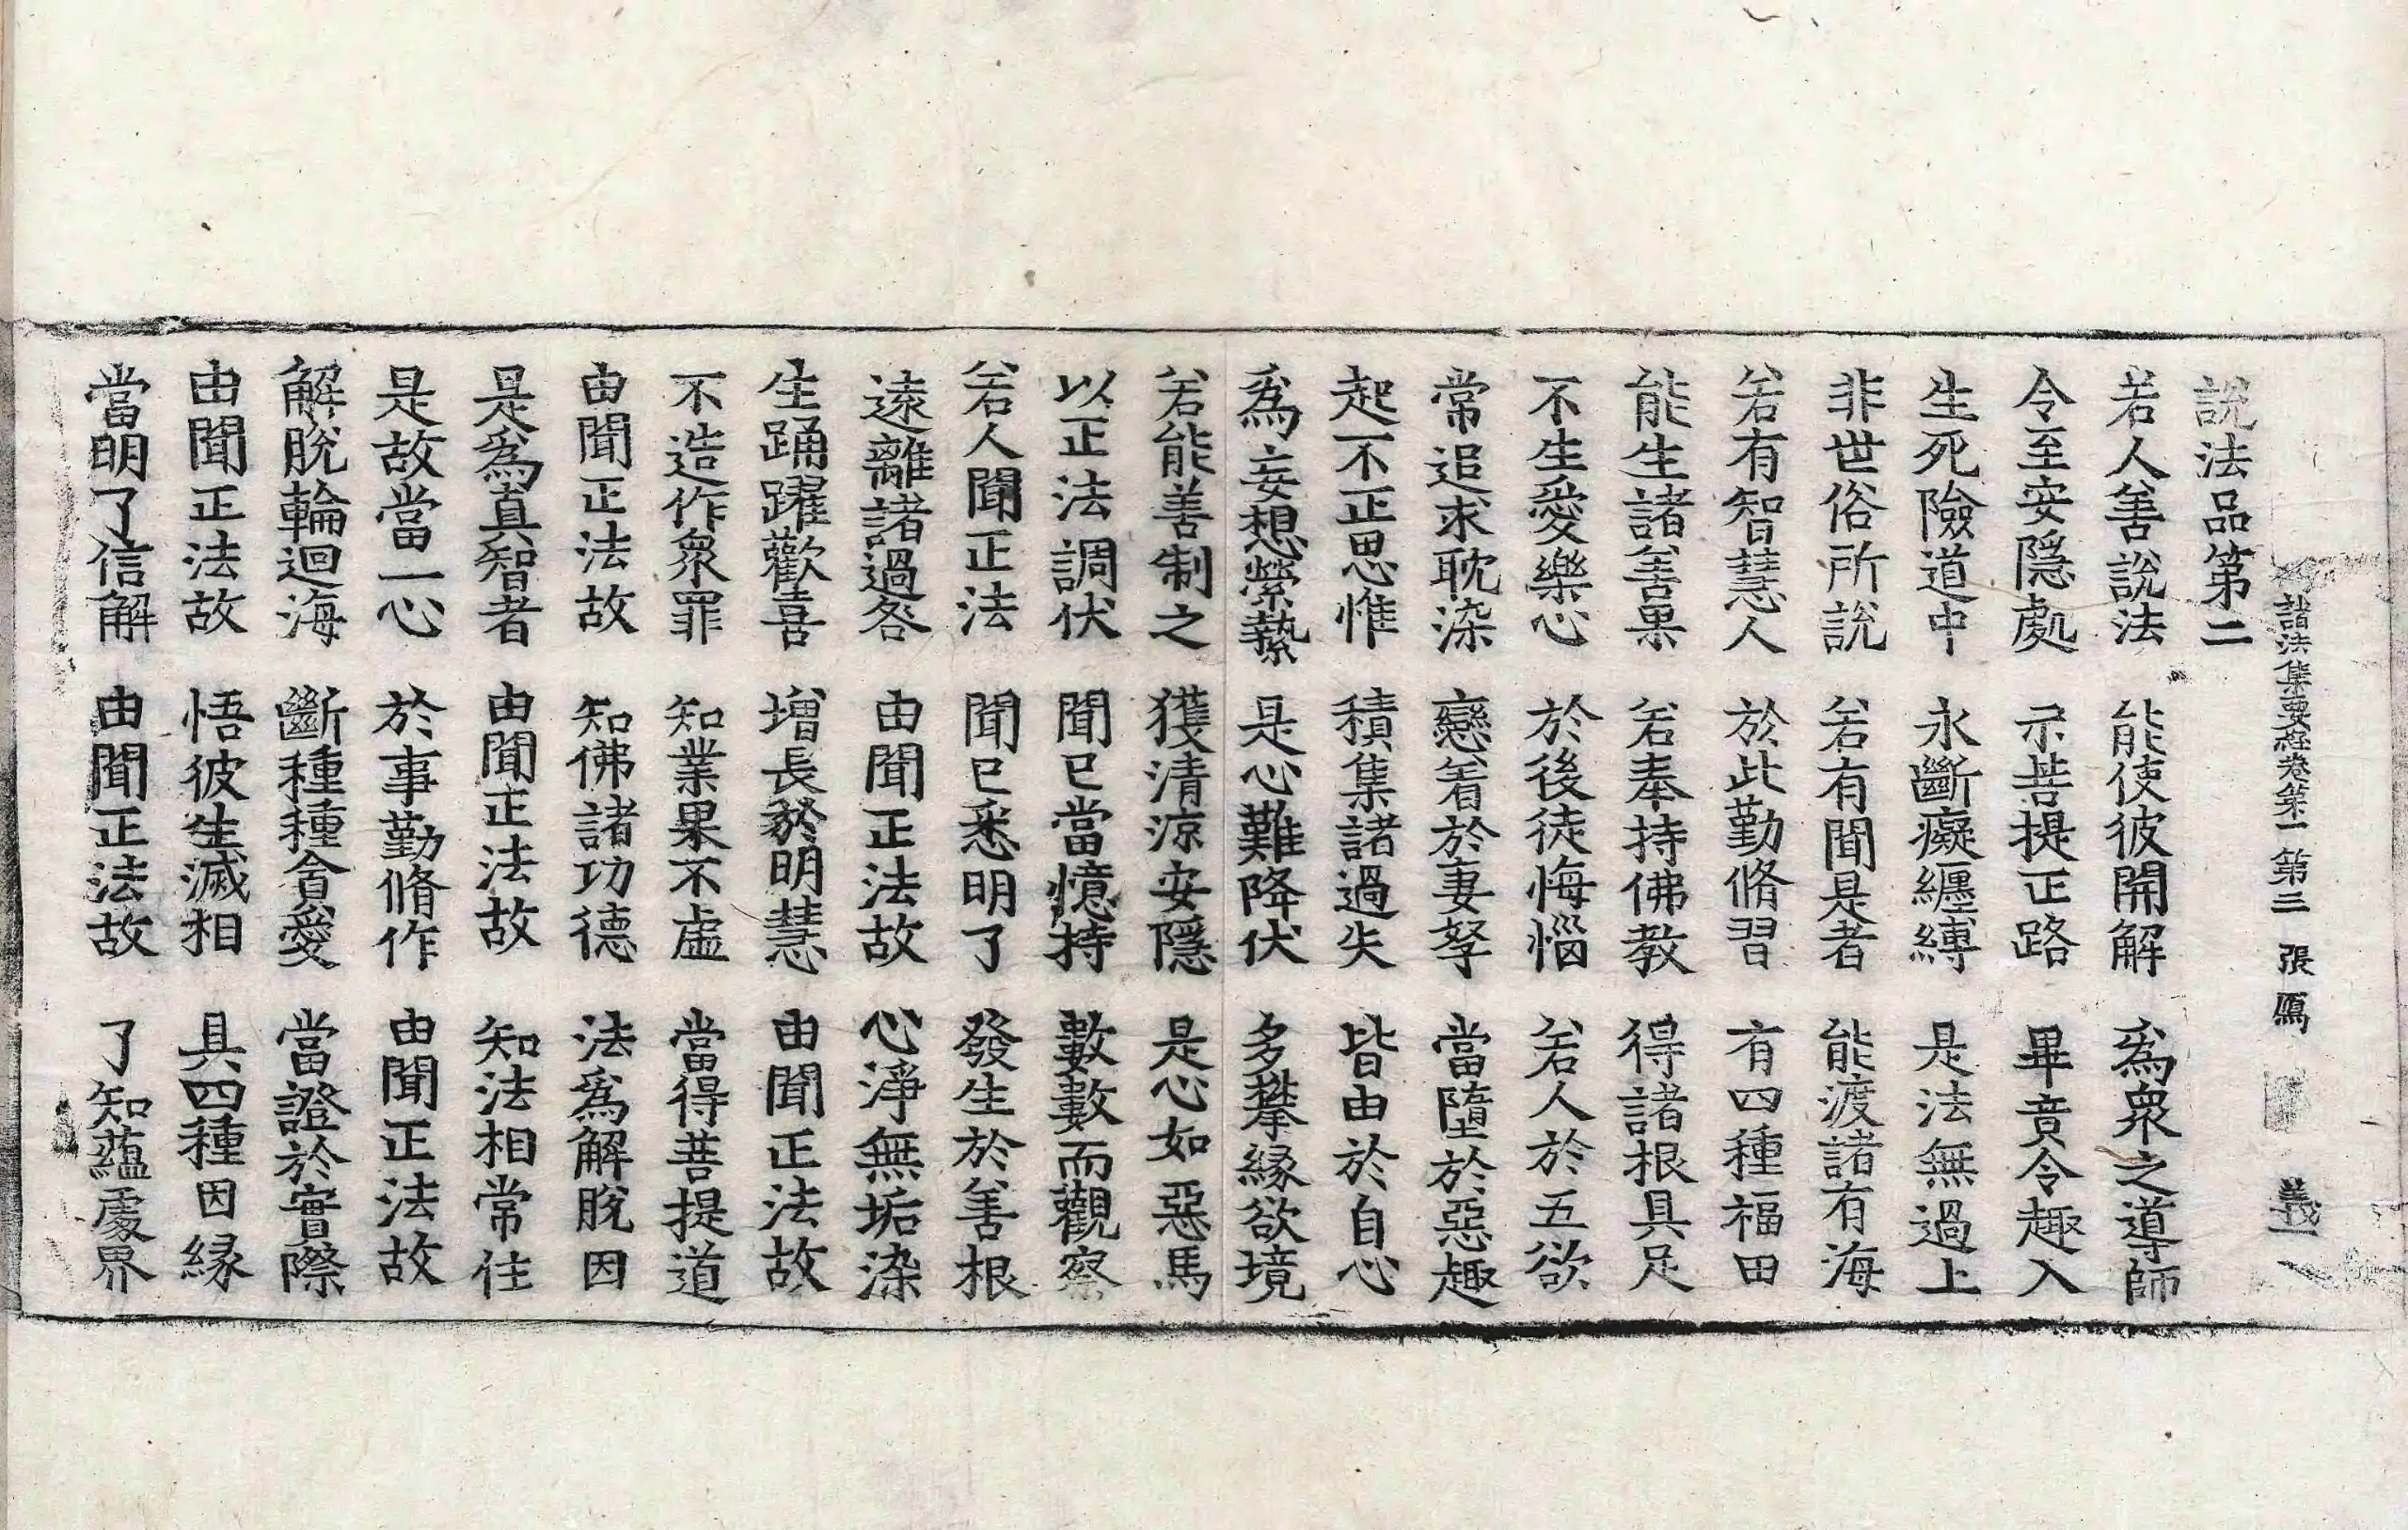 諸法集要經卷第一 第三 張 鴈 義
說法品第二
若人善說法 能使彼開解 爲衆之導師
令至安隱處 示菩提正路 畢竟令趣入
生死險道中 永斷癡纏縛 是法無過上
非世俗所說 若有聞是者 能渡諸有海
若有智慧人 於此勤脩習 有四種福田
能生諸善果 若奉持佛教 得諸根具足
不生愛樂心 於後徒悔惱 若人於五欲
常追求耽染 戀着於妻孥 當墮於惡趣
起不正思惟 積集諸過失 皆由於自心
爲妄想縈蟄 是心難降伏 多攀緣欲境
若能善制之 獲清涼安隱 是心如惡馬
以正法調伏 聞已當憶持 數數而觀察
若人聞正法 聞已悉明了 發生於善根
遠離諸過咎 由聞正法故 心淨無垢染
生踊躍歡喜 增長於明慧 由聞正法故
不造作衆罪 知業果不虛 當得菩提道
由聞正法故 知佛諸功德 法爲解脫因
是爲真智者 由聞正法故 知法相常住
是故當一心 於事勤脩作 由聞正法故
解脫輪迴海 斷種種貪愛 當證於實際
由聞正法故 悟彼生滅相 具四種因緣
當明了信解 由聞正法故 了知蘊處界